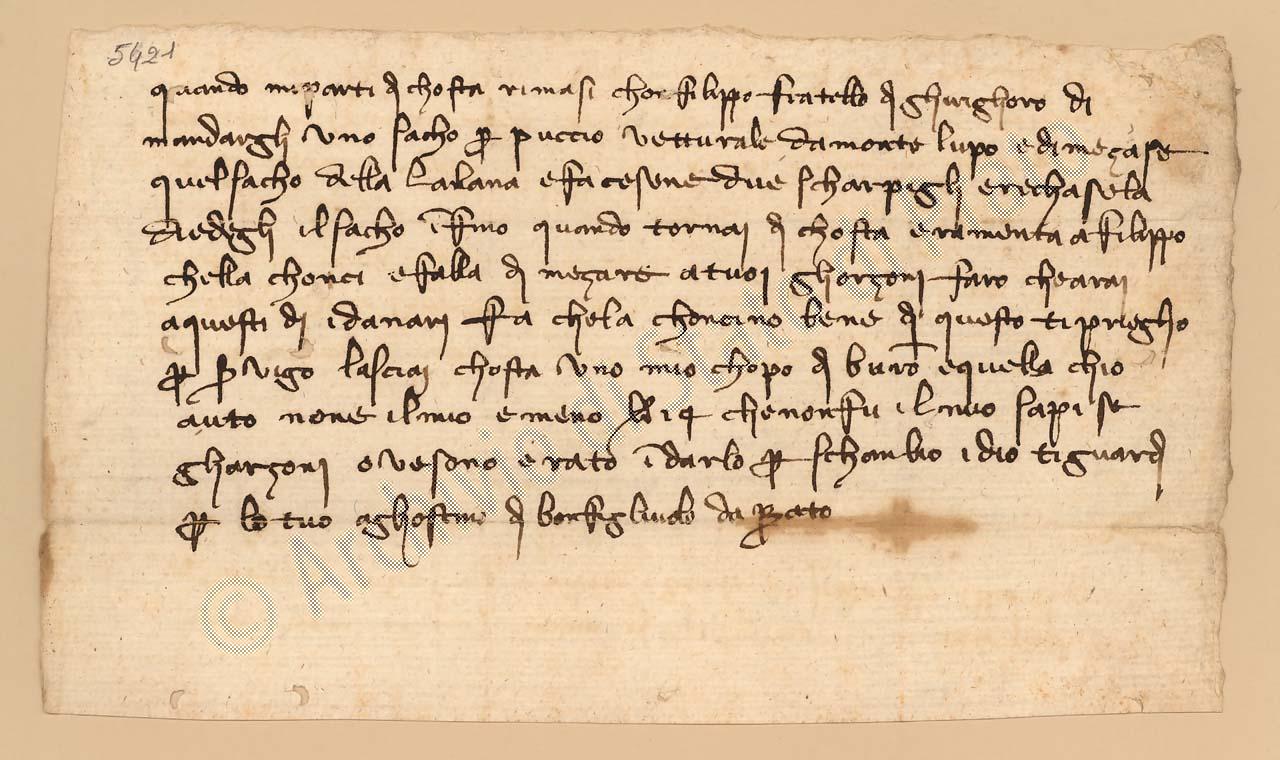 5421
quando mi parti di chosta rimasi chon filippo fratello di ghirighoro di
mandargli uno sacho per puccio vetturale da monte lupo e dimezase
quel sacho della lalana e facesene due scharpigli e rechasela
diedegli il sacho ī fino quando tornai di chosta e ramenta a filippo
chella chonci e falla di mezare a tuoi gharzoni faro che arai
a questi di i danari fa che la choncino bene di questo ti priegho
per servigo lasciai chosta uno mio chopo di burō e quella chio
auto none il mio e meno che non fu il mio sapi se
gharzoni ove sono erato ī darlo per schambio idio ti guardi
per lo tuo aghostino di da prato
© Archivio di Stato di Prato